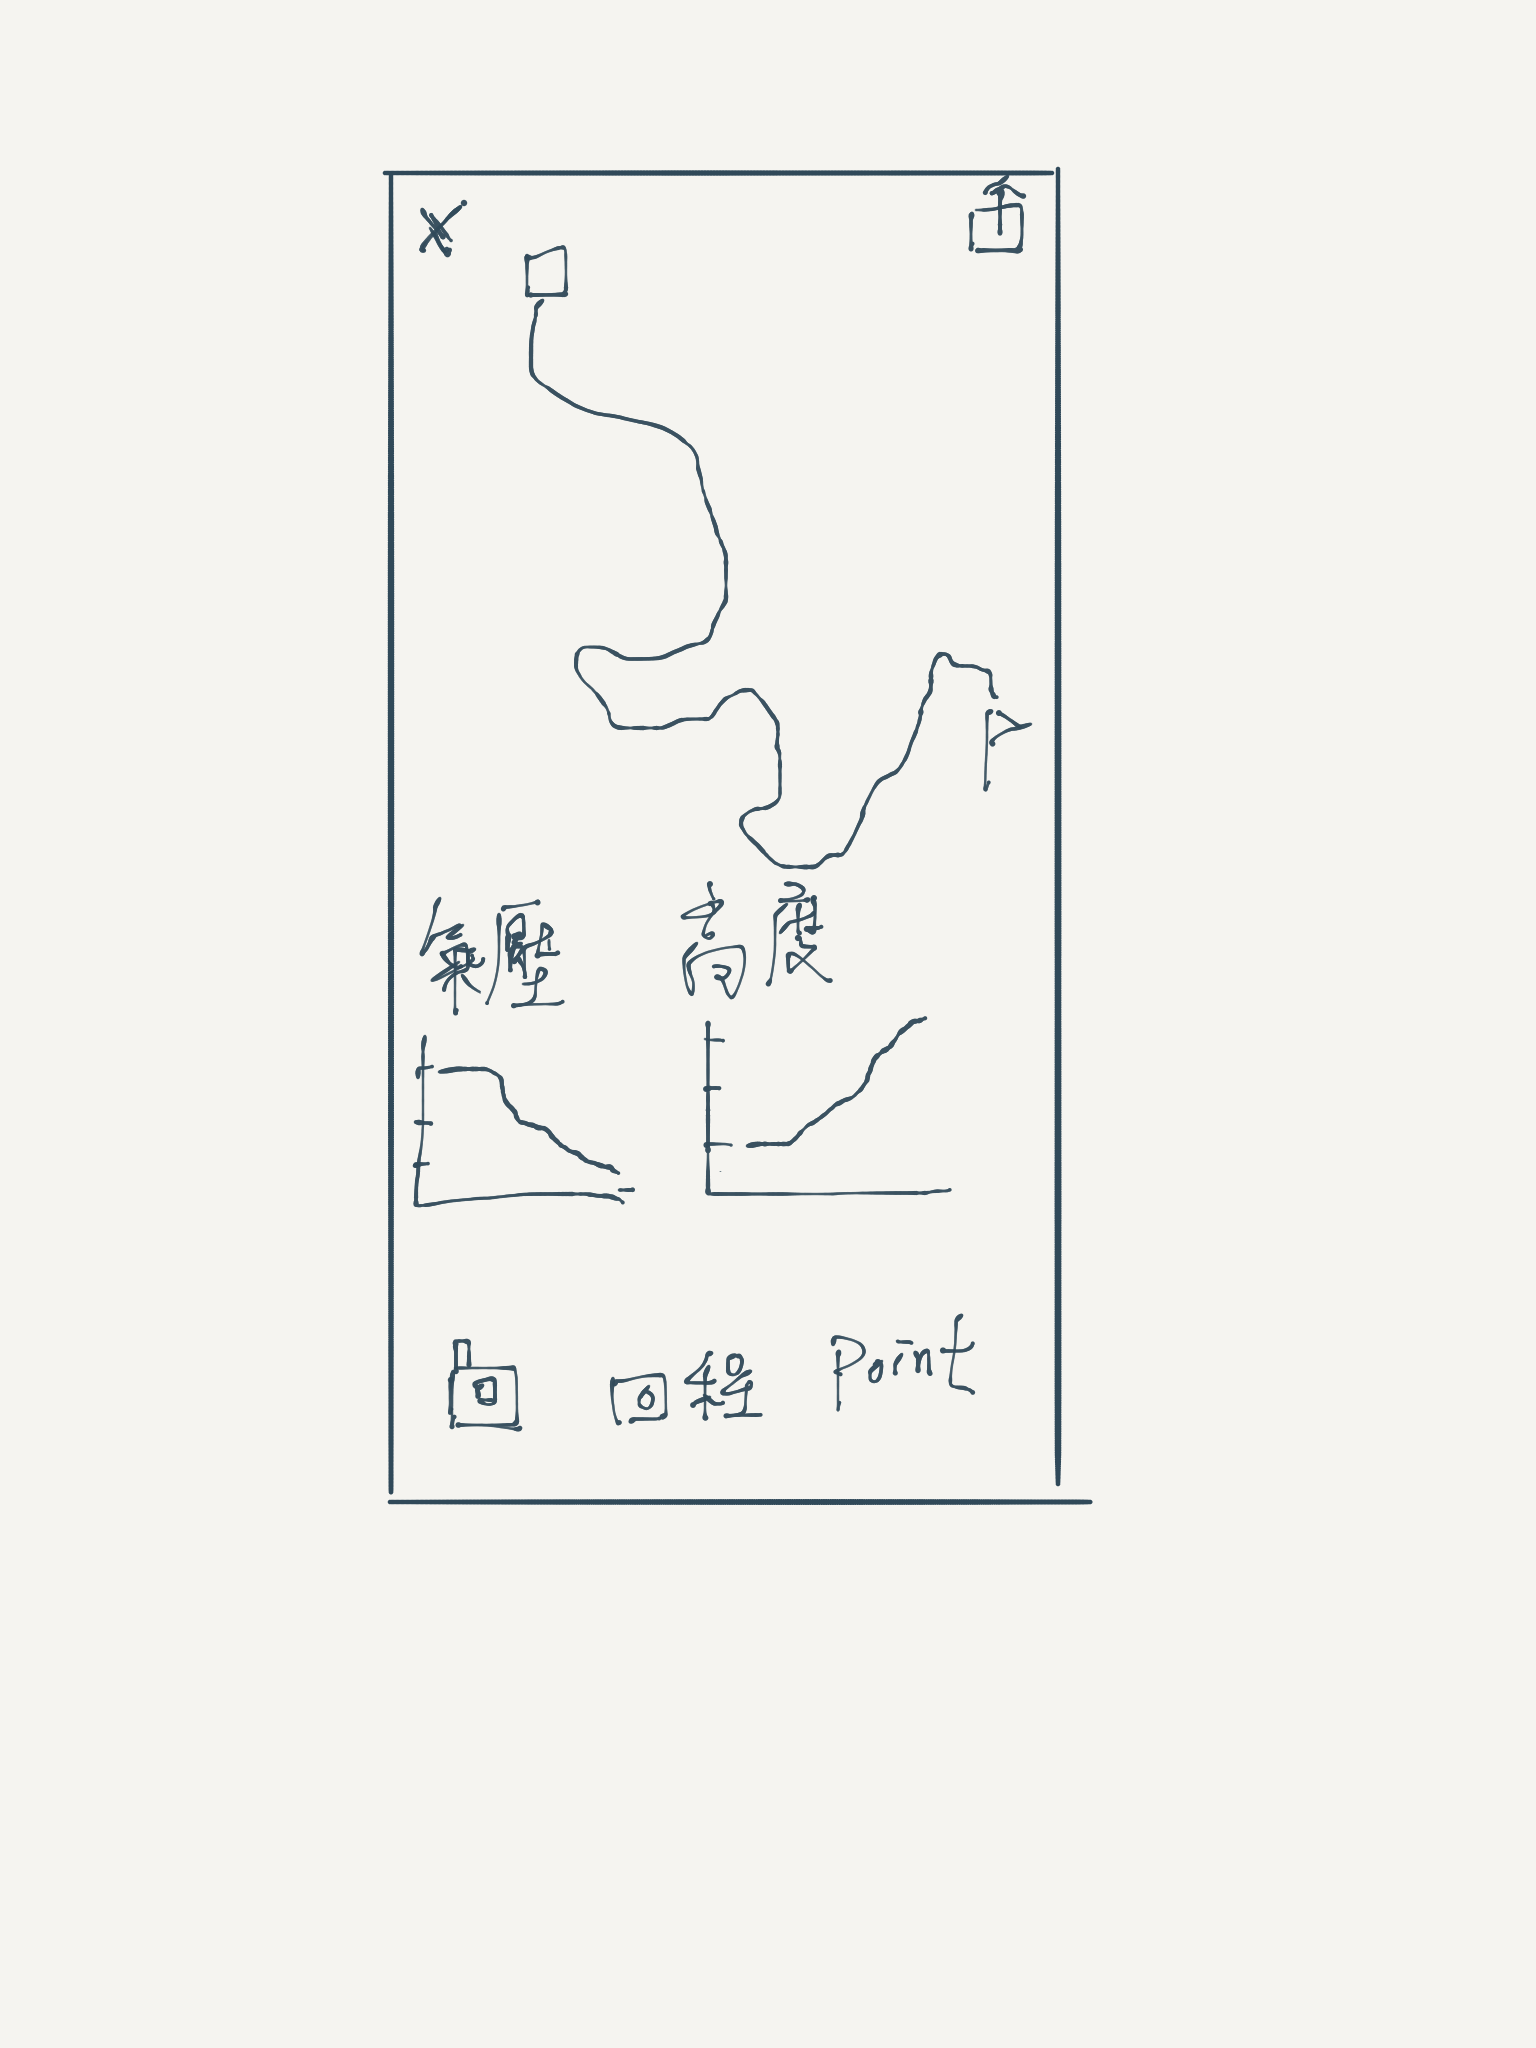 氣壓 高度
回程 Point